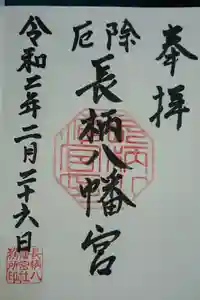 奉拝
厄除
長柄八幡宮
令和二年二月二十六日
長柄八
幡宮社
務所印